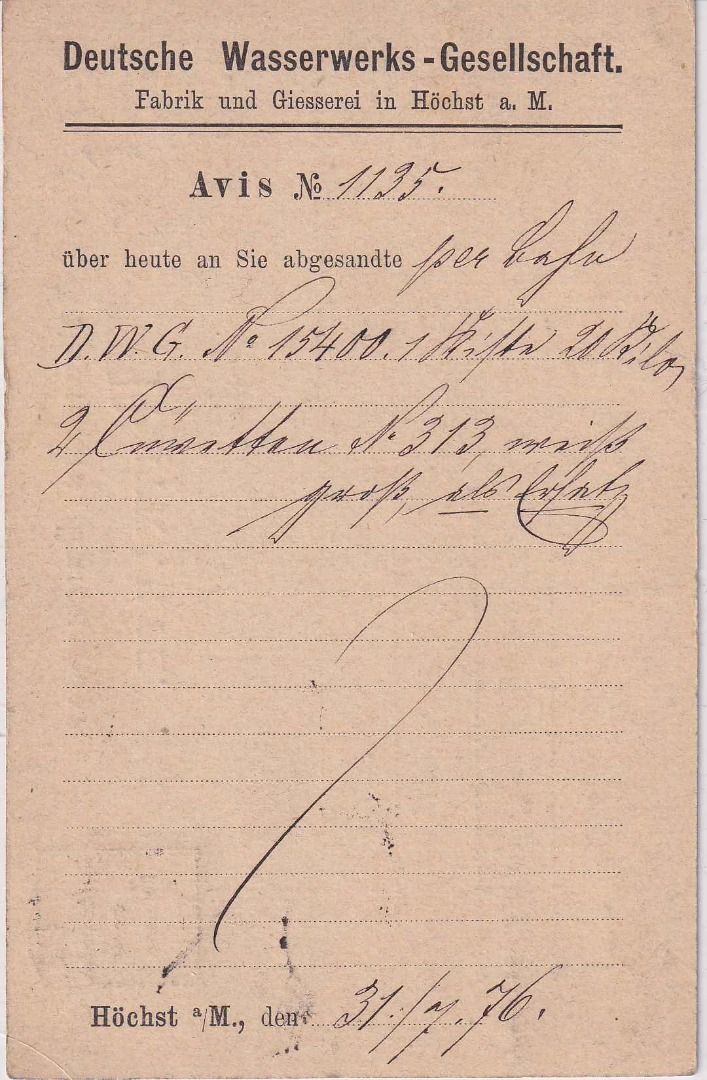 Deutsche Wasserwerks-Gesellschaft.
Fabrik und Giesserei in Höchst a. M.
Avis № 1135.
über heute an Sie abgesandte per Bahn
D.W.G. No 15400. 1 Kiste 20 Kilo,
2 Cüvetten No 313, weiß
groß, als Ersatz
Höchst a/M., den 31./7.76.